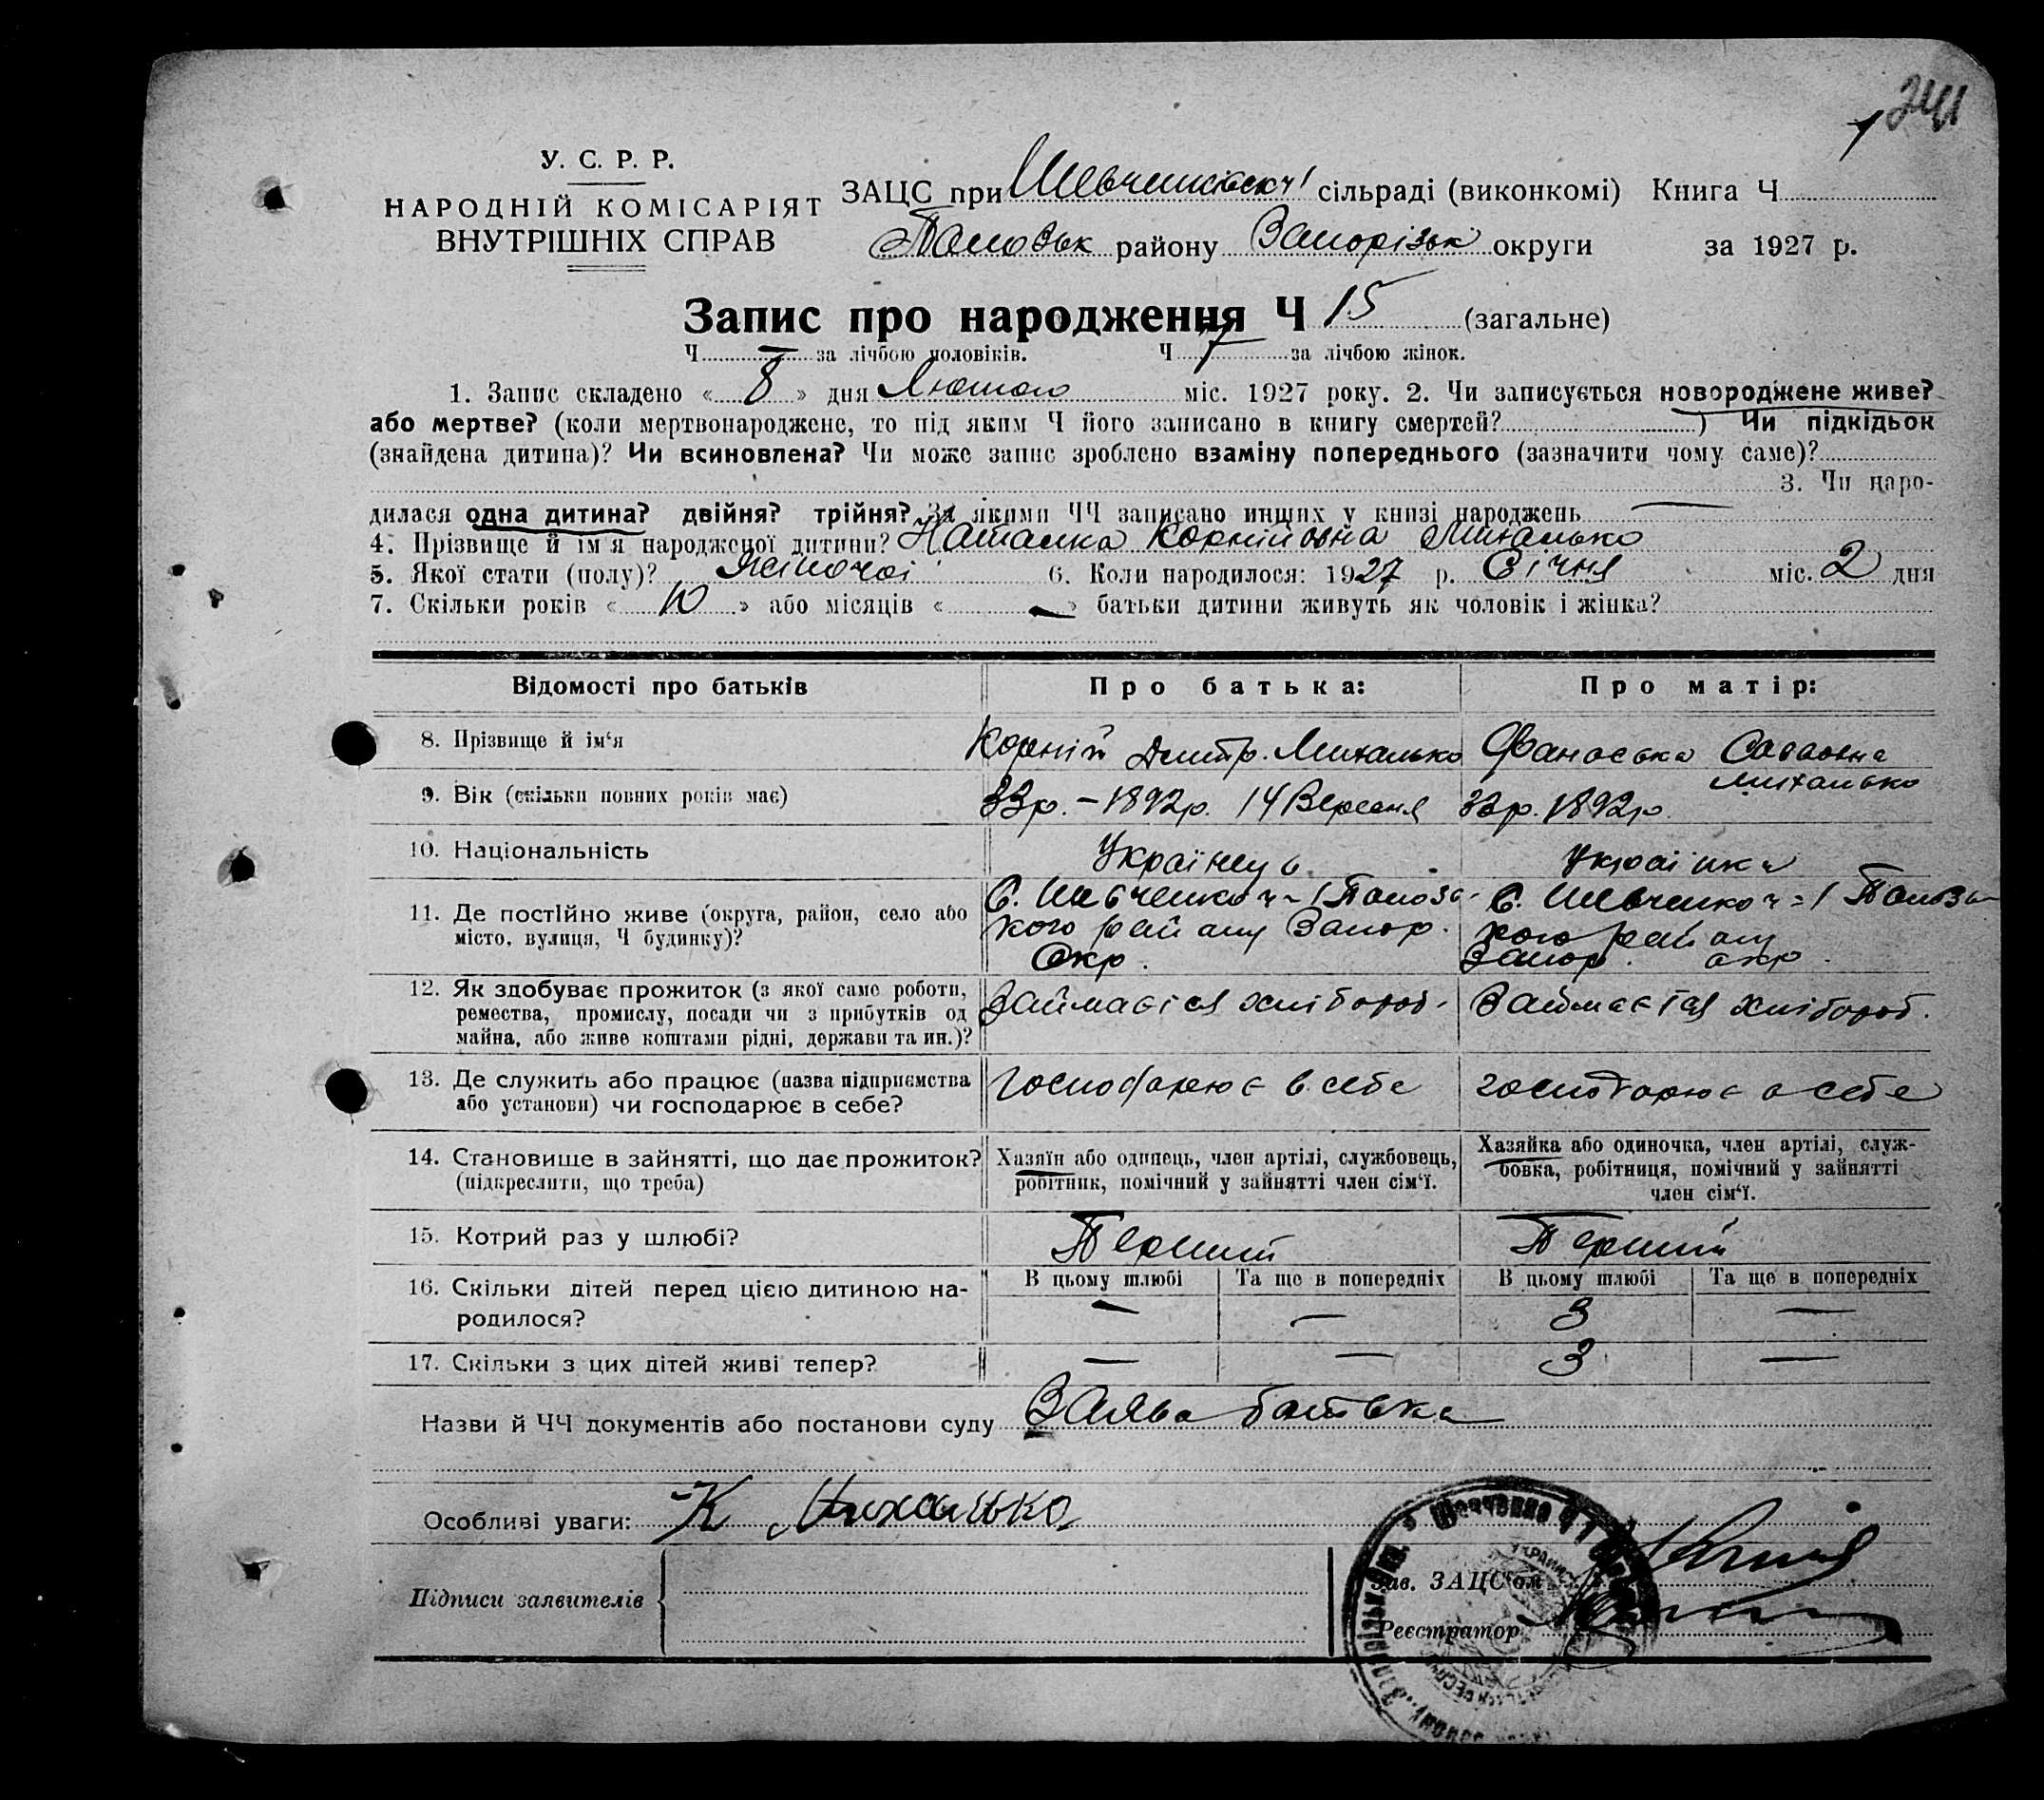 241
У. С. Р. Р.
НАРОДНІЙ КОМІСАРІЯТ
ВНУТРІШНІХ СПРАВ
ЗАЦС при сільраді (виконкомі) Книга Ч
району Запорізьк округи за 1927 р.
Запис про народження Ч 15 (загальне)
Ч — за лічбою чоловіків. Ч 7 за лічбою жінок.
1. Запис складено « 8 » дня Лютого міс. 1927 року. 2. Чи записується новороджене живе?
або мертве? (коли мертвонароджене, то під яким Ч його записано в книгу смертей? ) Чи підкідьок
(знайдена дитина)? Чи всиновлена? Чи може запис зроблено взаміну попереднього (зазначити чому саме)?
3. Чи наро-
дилася одна дитина? двійня? трійня? За якими ЧЧ записано инших у книзі народжень —
4. Прізвище й ім'я народженої дитини? Наталка Корніївна Михалько
5. Якої статі (полу)? Жіночої 6. Коли народилося: 1927 р. Січня міс. 2 дня
7. Скільки років « 10 » або місяців « — » батьки дитини живуть як чоловік і жінка?
Відомості про батьків Про батька: Про матір:
8. Прізвище й ім'я Корній Дмитр. Михалько Фанаська Савовна Михалько
9. Вік (скільки повних років має) 33р. – 1892р. 14 Вересня 33р. 1892р.
10. Національність Українець Українка
11. Де постійно живе (округа, район, село або
місто, вулиця, Ч будинку)?
С. Шевченко ч-1
кого району Запор.
Окр.
С. Шевченко ч=1
кого району
Запор. окр.
12. Як здобуває прожиток (з якої саме роботи,
ремества, промислу, посади чи з прибутків од
майна, або живе коштами рідні, держави та ин.)?
Займається хлібороб. Займається хлібороб.
13. Де служить або працює (назва підприємства
або установи) чи господарює в себе?
Господарює в себе господарює в себе
14. Становище в зайнятті, що дає прожиток?
(підкреслити, що треба)
Хазяїн або одинець, член артілі, службовець,
робітник, помічний у зайнятті член сім'ї.
Хазяйка або одиночка, член артілі, служ-
бовка, робітниця, помічний у зайнятті
член сім'ї.
15. Котрий раз у шлюбі? Перший Перший
16. Скільки дітей перед цією дитиною на-
родилося?
В цьому шлюбі Та ще в попередніх В цьому шлюбі Та ще в попередніх
— — 3 —
17. Скільки з цих дітей живі тепер? — — 3 —
Назви й ЧЧ документів або постанови суду Заява батька
Особливі уваги: К Михалько
Підписи заявителів
Зав. ЗАЦС'ом
Реєстратор